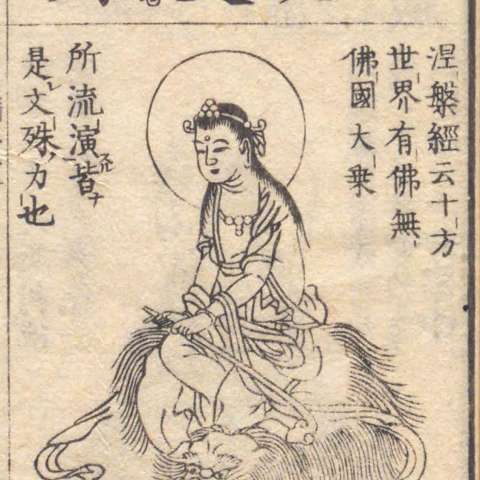 涅槃經云十方
世界有佛無
佛國大乗
所流演皆
是文殊力也